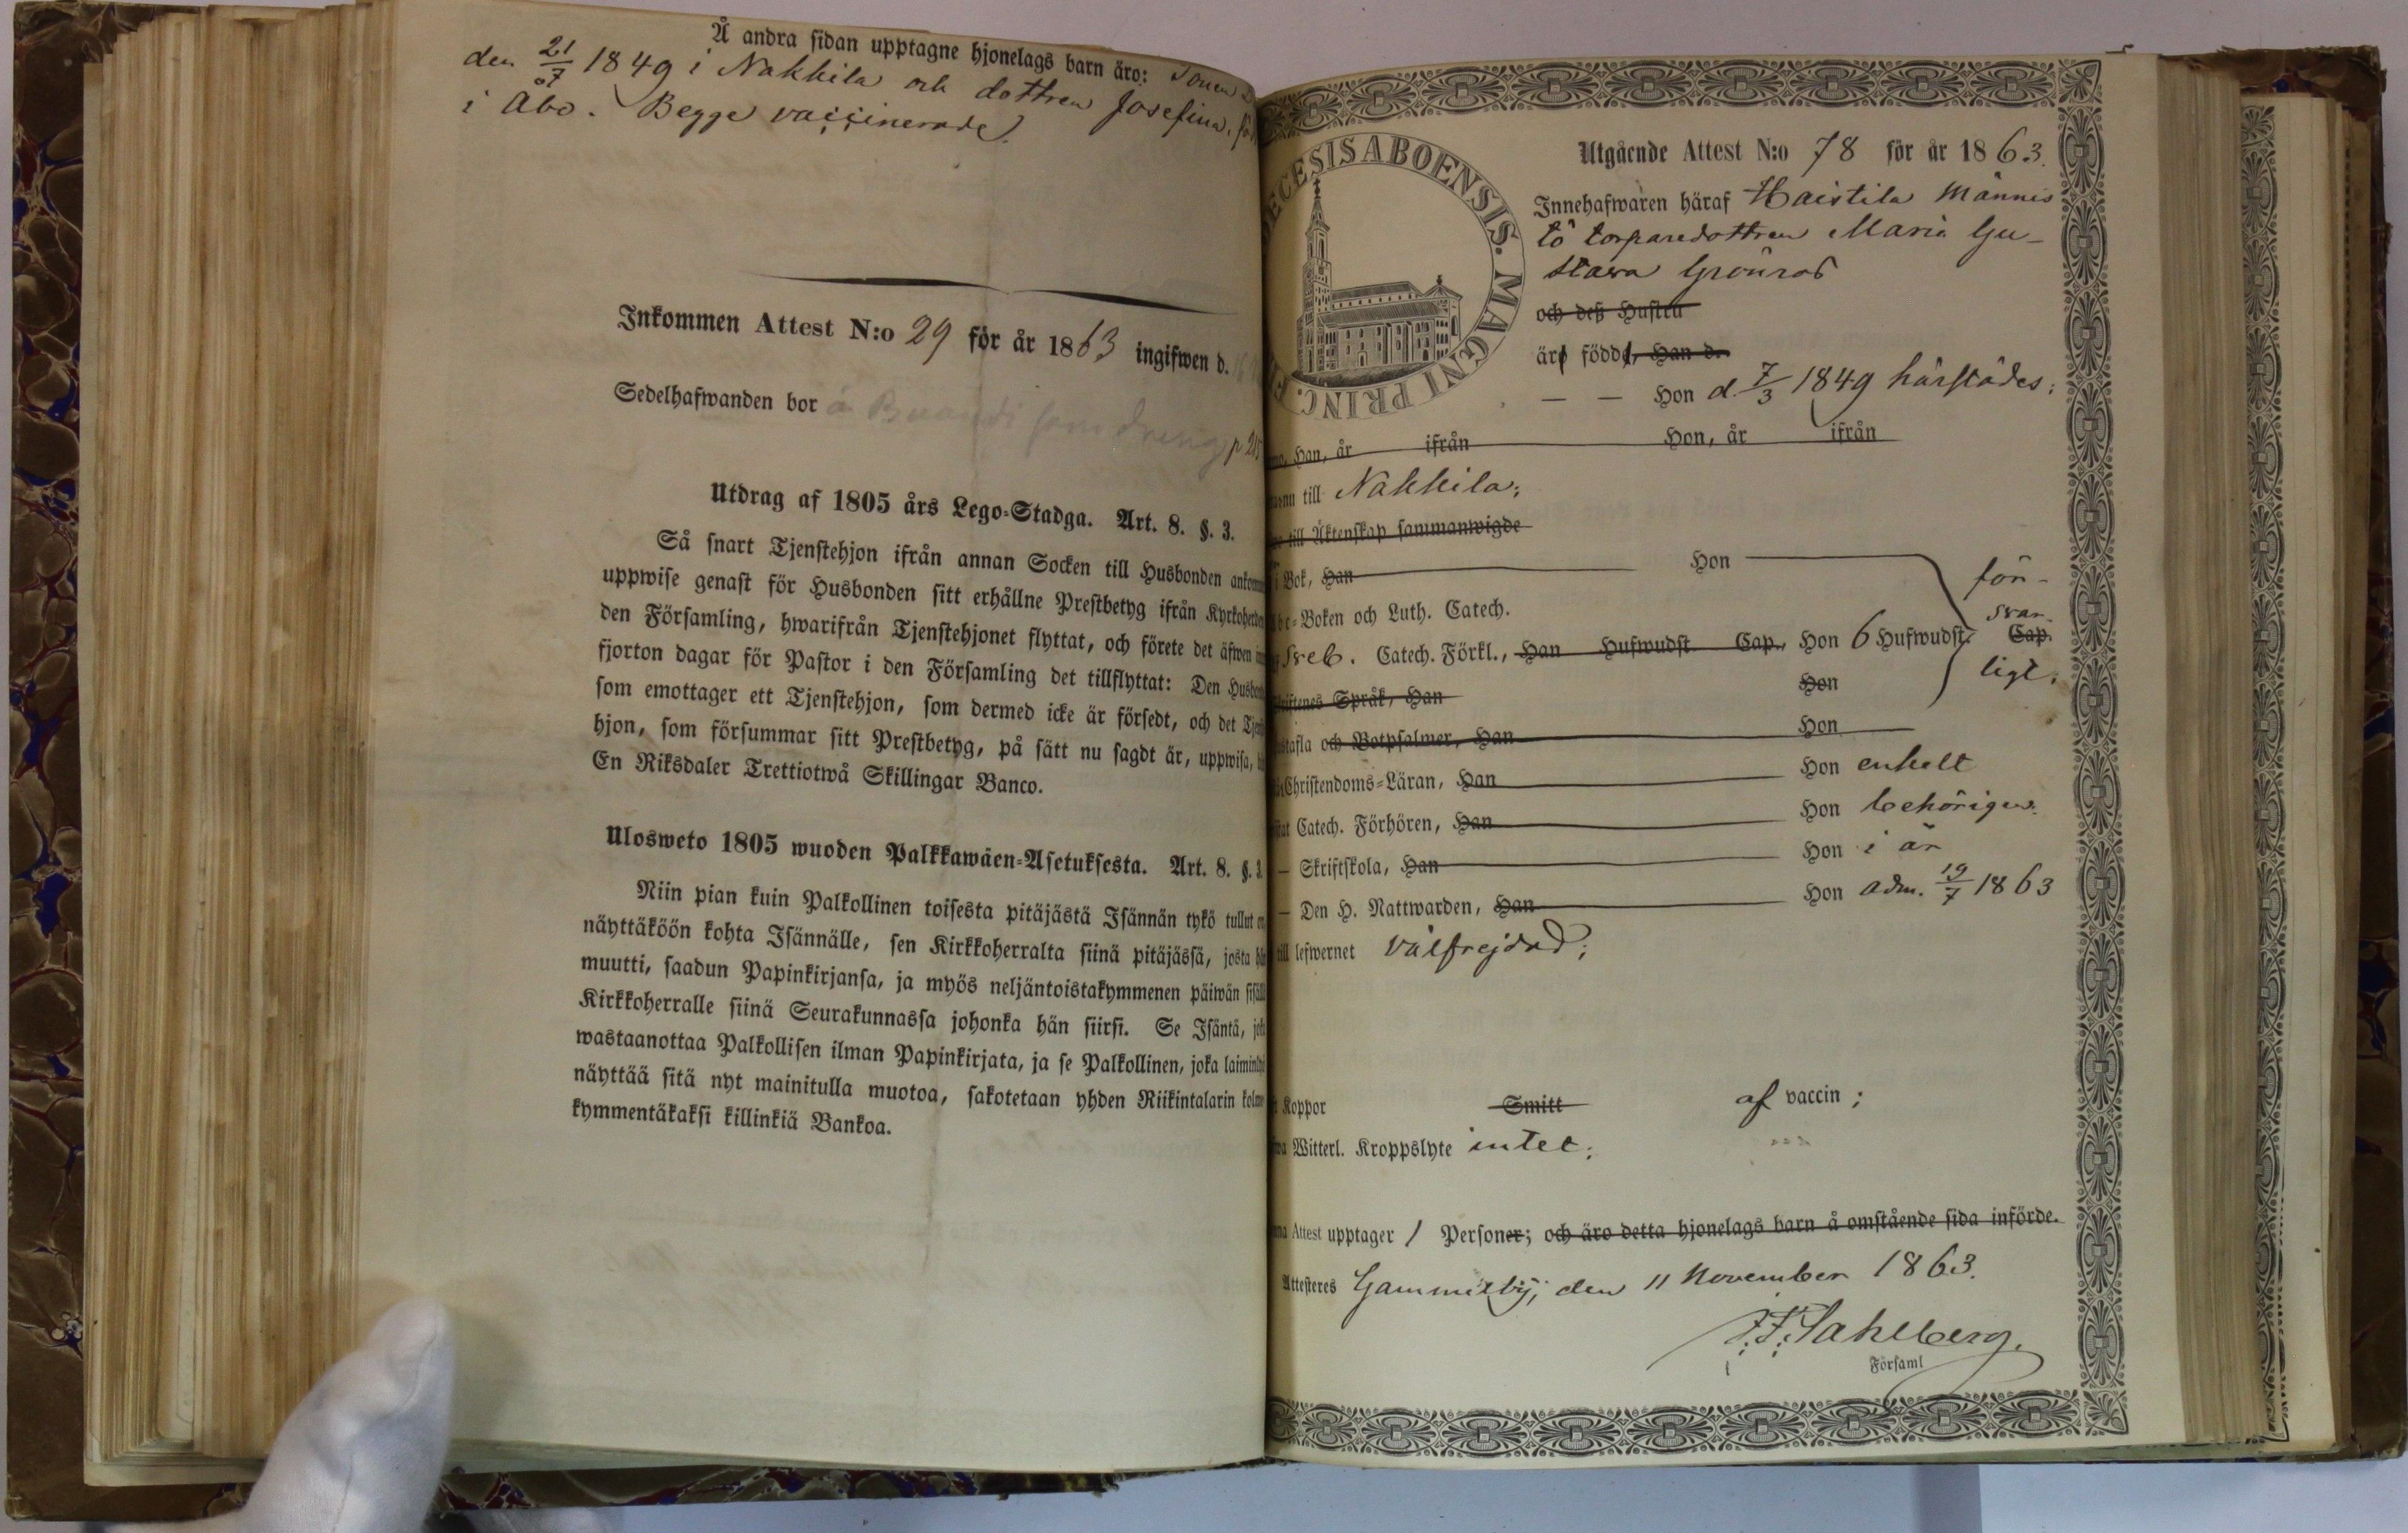 Å andra sidan upptagne hjonelags barn äro: Sonen
den 21/7 1849 i Nakkila och dottren Josefina, fö
i Åbo. Begge vaccinerade.
Inkommen Attest N:o 29 för år 1863 ingifwen d.
Sedelhafwanden bor å som dreng p 215
Utdrag af 1805 års Lego-Stadga. Art. 8. §. 3.
Så snart Tjenstehjon ifrån annan Socken till Husbonden ankomm
uppwise genast för Husbonden sitt erhållne Prestbetyg ifrån Kyrkoherden
den Församling, hwarifrån Tjenstehjonet flyttat, och förete det äfwen inn
fjorton dagar för Pastor i den Församling det tillflyttat: Den Husbond
som emottager ett Tjenstehjon, som dermed icke är försedt, och det Tjenst
hjon, som försummar sitt Prestbetyg, på sätt nu sagdt är, uppwisa, bö
En Riksdaler Trettiotwå Skillingar Banco.
Ulosweto 1805 wuoden Palkkawäen-Asetuksesta. Art. 8. §. 3.
Niin pian kuin Palkollinen toisesta pitäjästä Isännän tykö tullut on
näyttäköön kohta Isännälle, sen Kirkkoherralta siinä pitäjässä, josta hän
muutti, saadun Papinkirjansa, ja myös neljäntoistakymmenen päiwän sisällä
Kirkkoherralle siinä Seurakunnassa johonka hän siirsi. Se Isäntä, joka
wastaanottaa Palkollisen ilman Papinkirjata, ja se Palkollinen, joka laiminlyö
näyttää sitä nyt mainitulla muotoa, sakotetaan yhden Riikintalarin kolme
kymmentäkaksi killinkiä Bankoa.
ECESIS ABOENSIS. MAGNI PRINC. FI
Utgående Attest N:o 78 för år 1863.
Innehafwaren häraf Haistila Männis
tö torparedottren Maria Gu-
stava Grönroos
och deß Hustru
äro född, Han d.
— — Hon d 7/3 1849 härstädes;
Han, år ifrån Hon, år ifrån
till Nakkila;
till Äktenskap sammanwigde
i Bok, Han Hon för-
be-Boken och Luth. Catech. svar-
Sveb. Catech. Förkl., Han Hufwudst Cap., Hon 6 Hufwudst. Cap. ligt;
riftenes Språk, Han Hon
stafla och Botpsalmer, Han Hon
Christendoms-Läran, Han Hon enkelt
Catech. Förhören, Han Hon behörigen
— Skriftskola, Han Hon i år
— Den H. Nattwarden, Han Hon adm. 19/7 1863
till lefwernet välfrejdad;
Koppor Smitt af vaccin;
Witterl. Kroppslyte intet;
Attest upptager 1 Personer; och äro detta hjonelags barn å omstående sida införde.
Attesteres Gammelby, den 11 November 1863.
F. F. Sahlberg.
Församl